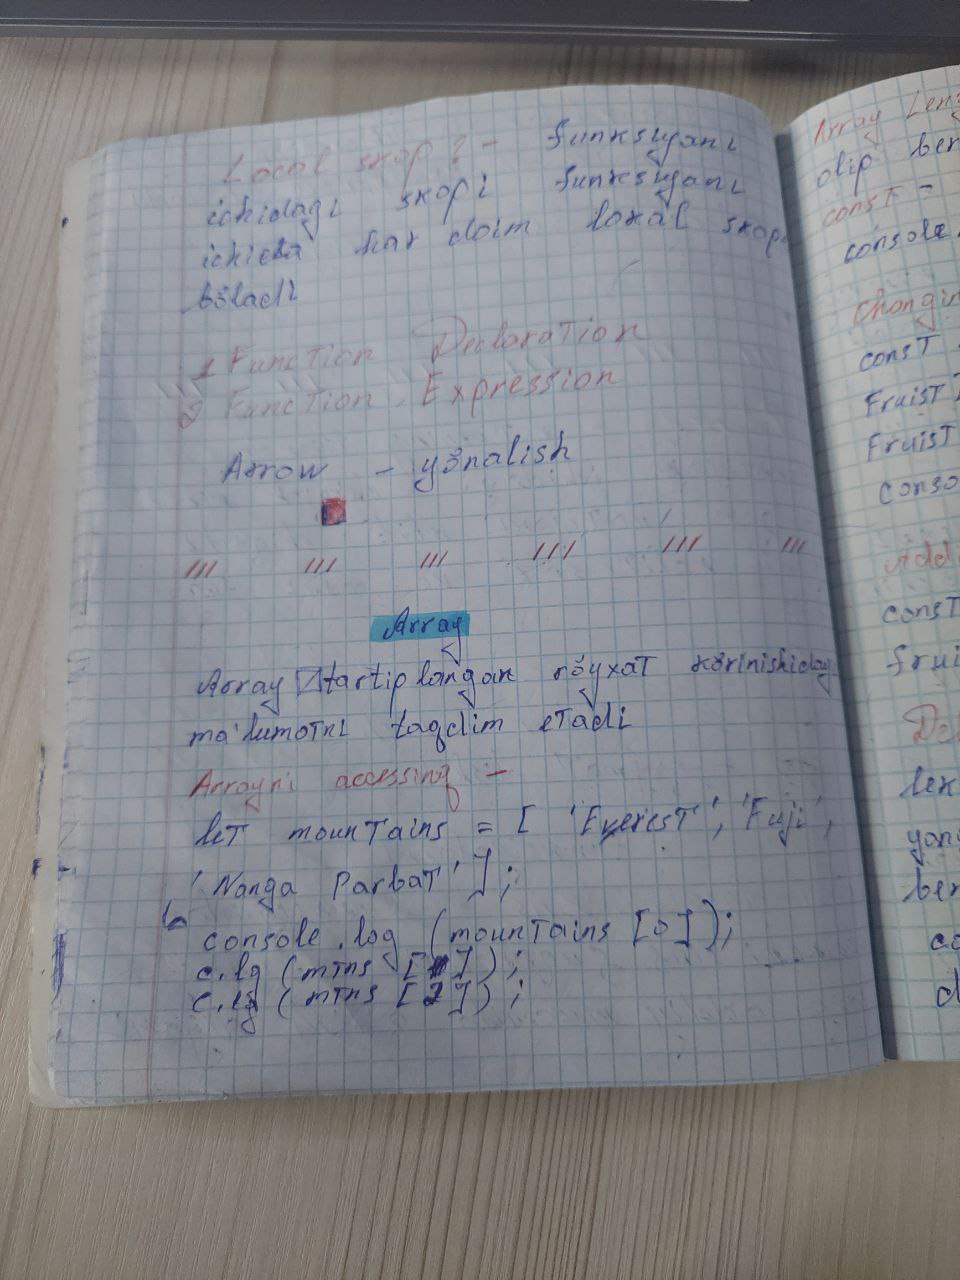 Local skopi - funksiyani
ichidagi skopi funksiyani
ichida har doim lokal skopi
bŏladi
1 Function Declaration
2 Function Expression
Arrow - yŏnalish
Array
Array tartiplangan rŏyxat kŏrinishidagi
ma'lumotni taqdim etadi
Arrayni accessing -
let mountains = [ 'Everest', 'Fuji',
'Nanga Parbat' ];
console.log (mountains [0]);
c.lg (mtns [1]);
c.lg (mtns [2]);
Array Leng
olip ber
const -
console.
Changin
const
Fruist
Fruist
conso
Add
const
frui
Del
lek
yong
ber
co
d